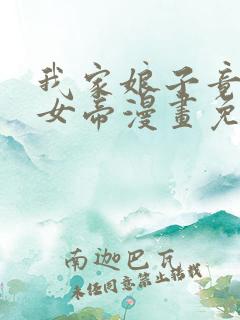 我家娘子竟
女帝漫畫免
南迦巴瓦
未经同意禁止转载